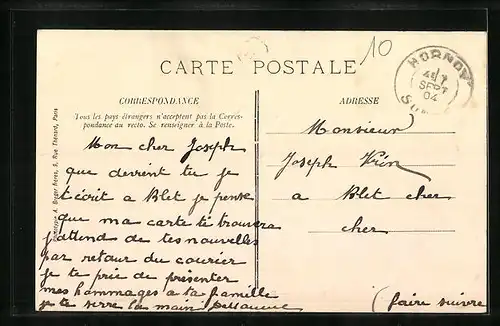 10
CARTE POSTALE
HORNOY
4E
SEPT
04
CORRESPONDANCE
Tous les pays étrangers n'acceptent pas la Corres-
pondance au recto. Se renseigner à la Poste.
ADRESSE
Mon cher Joseph
que devient tu je
t'écrit a Blet je pense
que ma carte te trouvera
j'attend de tes nouvelles
par retour du courier
je te prie de présenter
mes hommages a ta famille
je te serre la main
Monsieur
Joseph
a Blet cher
cher
(faire suivre